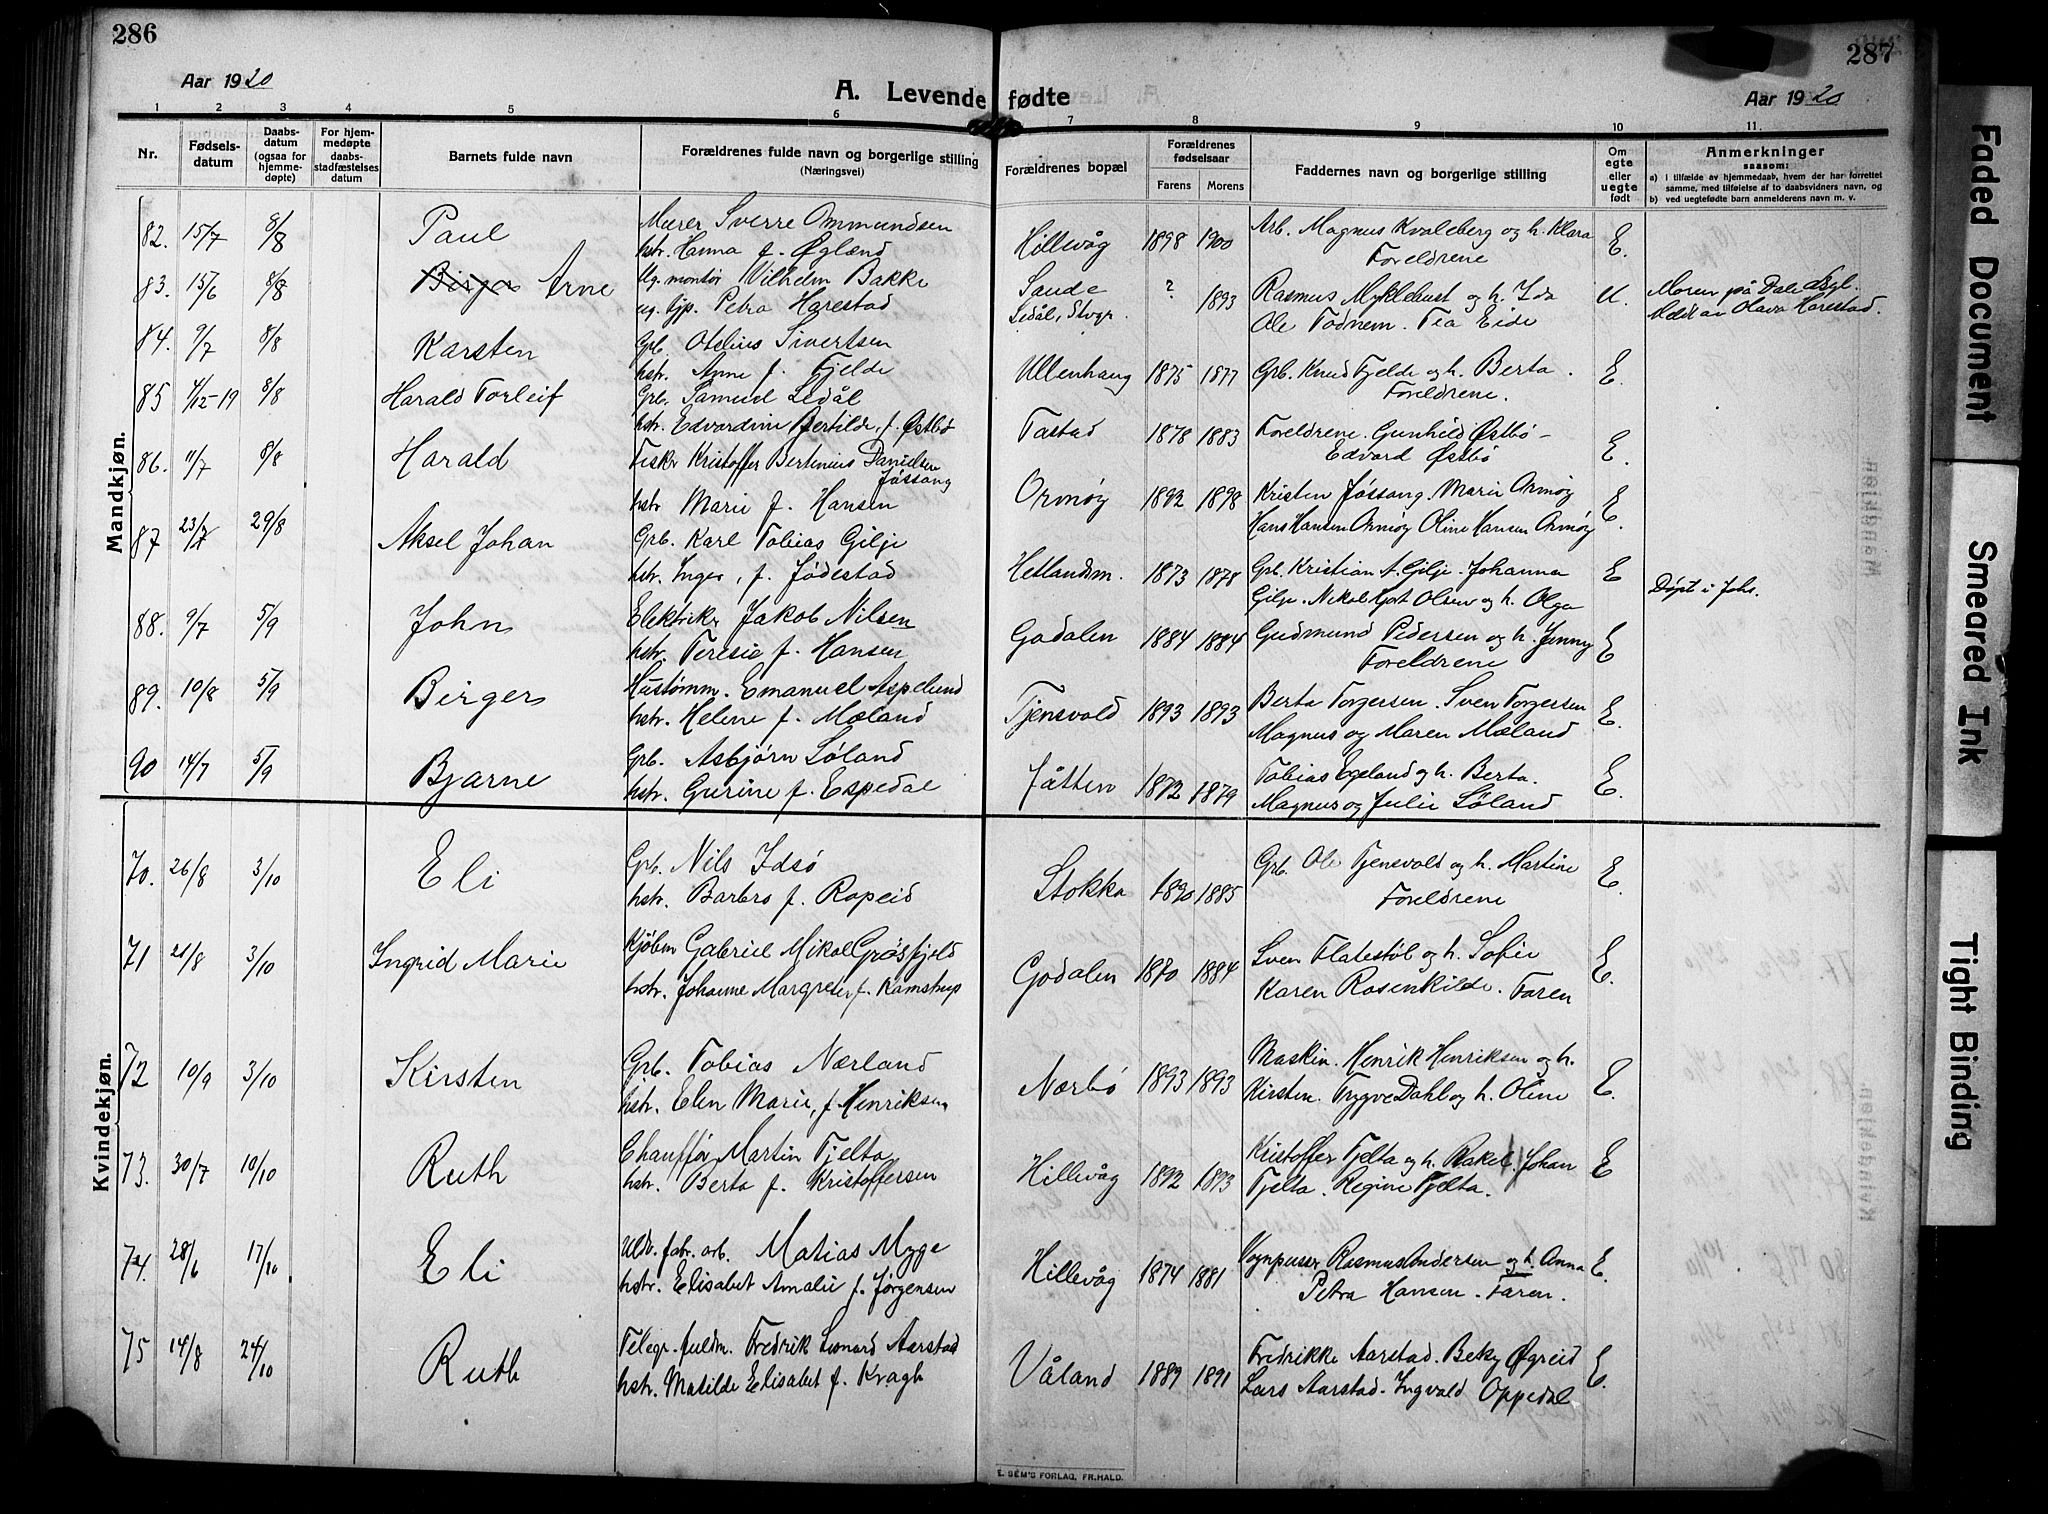 286
287
Aar 1920
A. Levende fødte
Aar 1920
1 2 3 4 5 6 7 8 9 10 11.
Nr.
Fødselsdatum
Daabsdatum (ogsaa for hjemmedøpte)
For hjemmedøpte daabsstadfæstelses datum
Barnets fulde navn
Forældrenes fulde navn og borgerlige stilling
(Næringsvei)
Forældrenes bopæl
Forældrenes fødselsaar
Farens Morens
Faddernes navn og borgerlige stilling
Om egte eller uegte født
Anmerkninger
saasom:
a) i tilfælde av hjemmedaab, hvem der har forrettet samme, med tilføielse af to daabsvidners navn, og
b) ved uegtefødte barn anmelderens navn m. v.
Mandkjøn.
82. 15/7 8/8 Paul Murer Sverre Ommundsen
hstr. Hanna f. Øglænd Hillevåg 1898 1900 Arb. Magnus Kvaleberg og h. Klara
Foreldrene E.
83. 15/6 8/8 Birger Arne Ug. montør Vilhelm Bakke
ug. tjp. Petra Harestad Sande
Ledål, Stvgr. ? 1893 Rasmus Myklebust og h. Ida
Ole Todnem. Tea Eide U. Moren på Dale Asyl.
Meldt av Olava Harestad.
84. 9/7 8/8 Karsten Grb. Otelius Sivertsen
hstr. Anne f. Fjelde Ullenhaug 1875 1877 Grb. Knud Fjelde og h. Berta.
Foreldrene. E.
85 4/12-19 8/8 Harald Torleif Grb. Samuel Ledål
hstr. Edvardine Bertilde, f. Østbø Tastad 1878 1883 Foreldrene. Gunhild Østbø -
Edvard Østbø E.
86. 11/7 8/8 Harald Fisker Kristoffer Bertinius Danielsen
Jøssang
hstr Marie f. Hansen Ormøy 1892 1898 Kristen Jøssang. Marie Ormøy
Hans Hansen Ormøy Oline Hansen Ormøy E.
87 23/7 29/8 Aksel Johan Grb. Karl Tobias Gilje
hstr. Inger, f. Jødestad Hetlandsm. 1873 1878 Grb. Kristian A. Gilje. Johanna
Gilje. Nikol. Olsen og h. Olga E Døpt i Johs.
88. 9/7 5/9 John Elektriker Jakob Nilsen
hstr. Teresie f. Hansen Godalen 1884 1884 Gudmund Pedersen og h. Jenny
Foreldrene E
89. 10/8 5/9 Birger Hustømm. Emanuel Aspelund
hstr. Helene f. Mæland Tjensvold 1893 1893 Berta Torgersen. Sven Torgersen
Magnus og Maren Mæland E.
90 14/7 5/9 Bjarne Grb. Asbjørn Søland
hstr. Gurine f. Espedal Jåtten 1872 1879 Tobias Egeland og h. Berta.
Magnus og Julie Søland E.
Kvindekjøn.
70. 26/8 3/10 Eli Grb. Nils Idsø
hstr. Barbro f. Ropeid Stokka 1890 1885 Grb. Ole Tjensvold og h. Martine
Foreldrene E.
71 21/8 3/10 Ingrid Marie Kjøbm Gabriel Mikal Grøsfjeld
hstr. Johanne Margrete f. Kamstrup Godalen 1880 1884 Sven Flatestøl og h. Sofie
Karen Rosenkilde. Faren E.
72 10/9 3/10 Kirsten Grb. Tobias Nærland
hstr. Elen Marie, f. Henriksen Nærbø 1893 1893 Maskin. Henrik Henriksen og h.
Kirsten. Trygve Dahl og h. Oline E.
73. 30/7 10/10 Ruth Chauffør Martin Tjelta
hstr. Berta f. Kristoffersen Hillevåg 1892 1893 Kristoffer Tjelta og h. Rakel. Johan
Tjelta. Regine Tjelta. E
74. 28/6 17/10 Eli Uldv. fabr. arb. Matias Myge
hstr. Elisabet Amalie f. Jørgensen Hillevåg 1874 1881 Vognpusser Rasmus Andersen og h. Anna
Petra Hansen. Faren. E.
75 14/8 24/10 Ruth Telegr. fuldm. Fredrik Leonard Aarstad
hstr. Matilde Elisabet f. Kragh Våland 1889 1891 Fredrikke Aarstad. Beky Øgreid
Lars Aarstad. Ingvald Oppedal E.
E. SEM'S FORLAG, FR.HALD.
Faded Document
Smeared Ink
Tight Binding